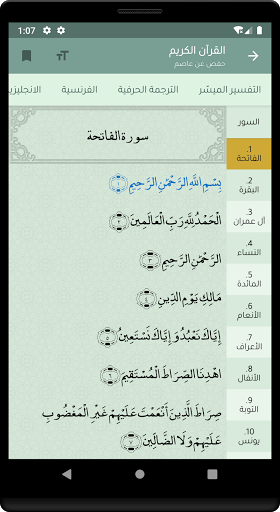 1:07
القرآن الكريم
حفص عن عاصم
التفسير الميسر
الترجمة الحرفية
الفرنسية
الانجليزي
السور
1.
الفاتحة
2.
البقرة
3.
آل عمران
4.
النساء
5.
المائدة
6.
الأنعام
7.
الأعراف
8.
الأنفال
9.
التوبة
10.
يونس
سورة الفاتحة
بِسْمِ اللَّهِ الرَّحْمَٰنِ الرَّحِيمِ ١
الْحَمْدُ لِلَّهِ رَبِّ الْعَالَمِينَ ٢
الرَّحْمَٰنِ الرَّحِيمِ ٣
مَالِكِ يَوْمِ الدِّينِ ٤
إِيَّاكَ نَعْبُدُ وَإِيَّاكَ نَسْتَعِينُ ٥
اهْدِنَا الصِّرَاطَ الْمُسْتَقِيمَ ٦
صِرَاطَ الَّذِينَ أَنْعَمْتَ عَلَيْهِمْ غَيْرِ الْمَغْضُوبِ
عَلَيْهِمْ وَلَا الضَّالِّينَ ٧